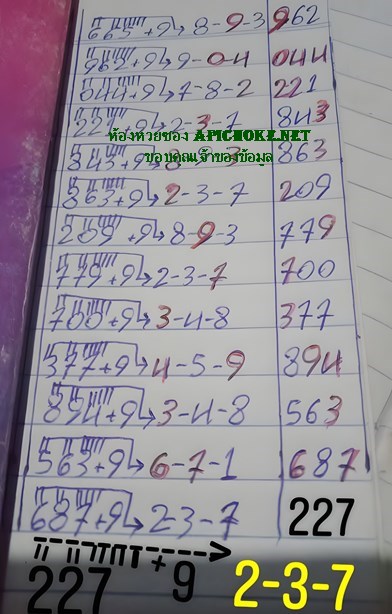 665+9→8-9-3 962
962+9→9-0-4 044
044+9→7-8-2 221
221+9→2-3-7 843
ห้องหวยของ APICHOKE.NET
843+9→8-9-3 863
ขอบคุณเจ้าของข้อมูล
863+9→2-3-7 209
209+9→8-9-3 779
779+9→2-3-7 700
700+9→3-4-8 377
377+9→4-5-9 894
894+9→3-4-8 563
563+9→6-7-1 687
687+9→2-3-7 227
227+9 2-3-7